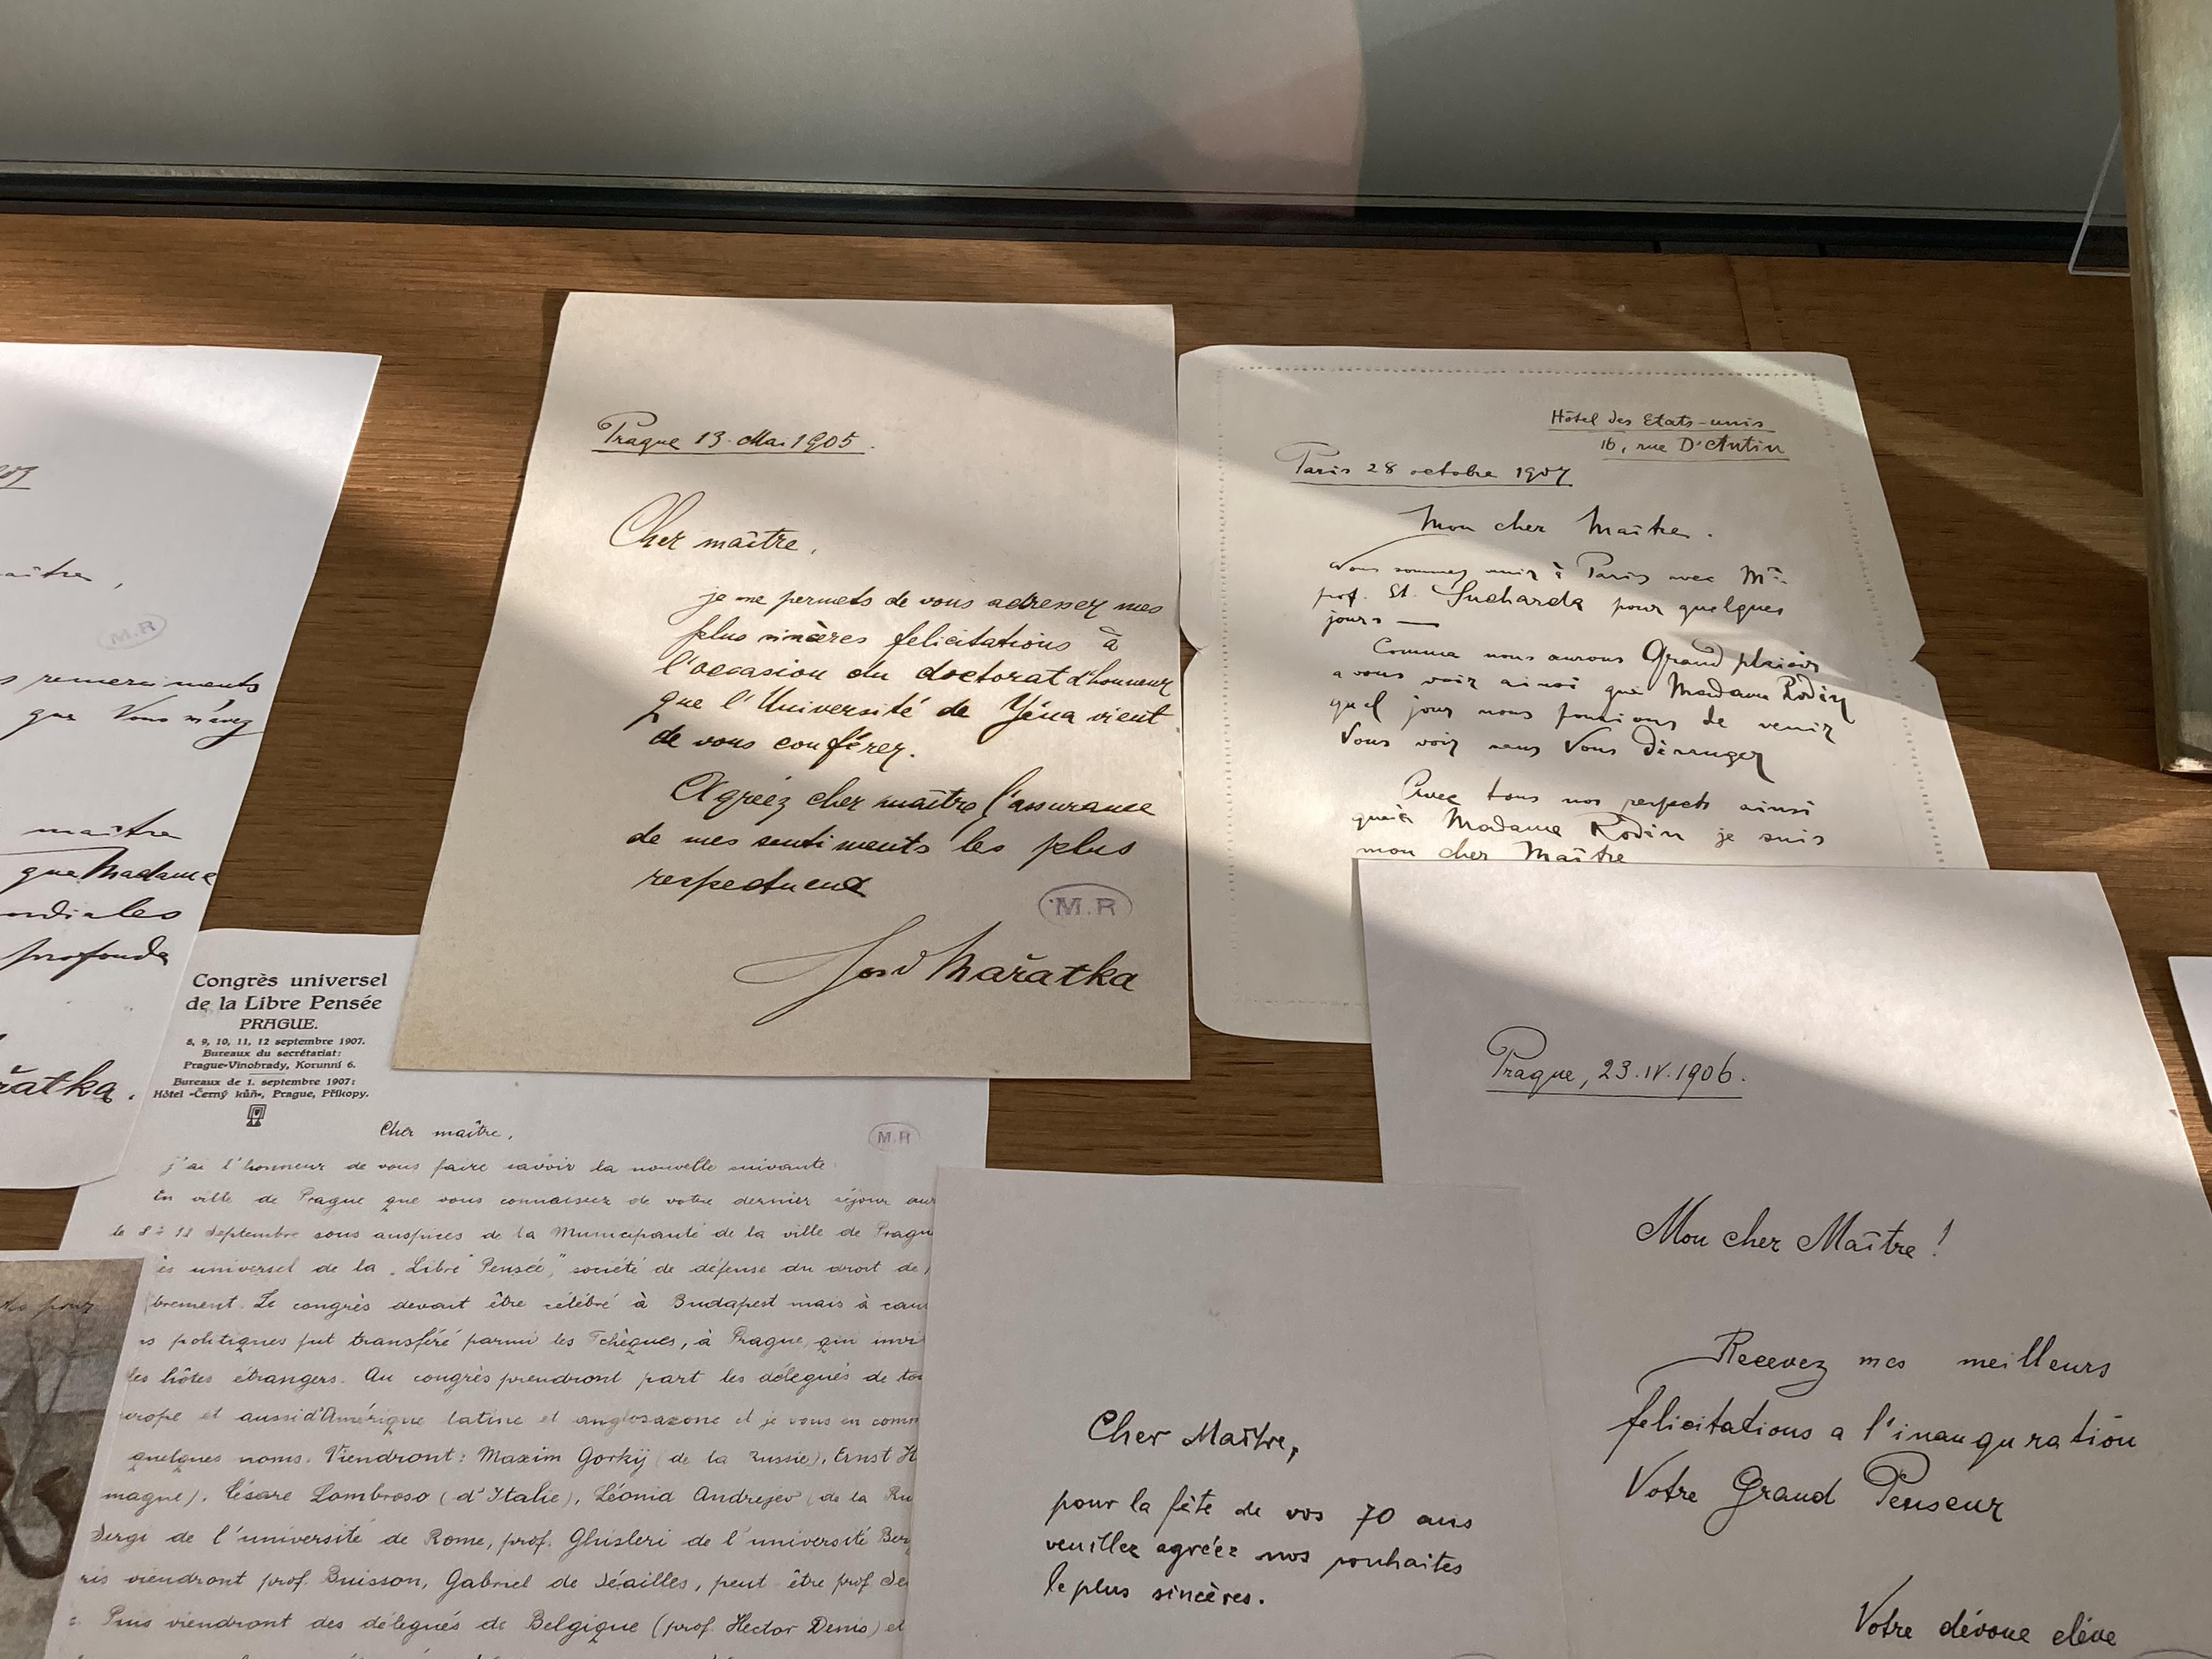 aître,
M.R
remerciments
que Vous m'avez
maître
que Madame
ndiales
profonde
řatka.
Prague 13. Mai 1905.
Cher maître,
je me permets de vous adresser mes
plus sincères felicitations à
l'occasion du doctorat d'honneur
que l'Université de Yéna vient
de vous conférer.
Agréez cher maître l'assurance
de mes sentiments les plus
respectueux
M.R
Josef Mařatka
Hôtel des Etats-unis
16, rue D'Antin
Paris 28 octobre 1907
Mon cher Maître.
Nous sommes venir à Paris avec
prof. St. Sucharda pour quelques
jours —
Comme nous aurons Grand plaisir
a vous voir ainsi que Madame Rodin
quel jour nous pourions de venir
Vous voir sans Vous déranger
Avec tous nos respects ainsi
qu'à Madame Rodin je suis
mon cher Maître
Congrès universel
de la Libre Pensée
PRAGUE.
8, 9, 10, 11, 12 septembre 1907.
Bureaux du secrétariat:
Prague-Vinohrady, Korunní 6.
Bureaux de 1. septembre 1907:
Hôtel »Černý kůň«, Prague, Příkopy.
Cher maître,
M.R
j'ai l'honneur de vous faire savoir la nouvelle suivante
En ville de Prague que vous connaissez de votre dernier séjour aur
le 8 à 12 Septembre sous auspices de la Municipauté de la ville de Pragu
ès universel de la „Libre Pensée", société de défense du droit de
brement. Le congrès devait être célébré à Budapest mais à cau
ns politiques fut transféré parmi les Tchèques, à Prague, qui invi
les hôtes étrangers. Au congrès prendront part les délegués de tou
urope et aussi d'Amérique latine et anglosaxone et je vous en comm
quelques noms. Viendront: Maxim Gorkij (de la Russie), Ernst H
magne), Césare Lombroso (d'Italie), Léonid Andrejev (de la Ru
Sergi de l'université de Rome, prof. Ghisleri de l'université Ber
ris viendront prof. Buisson, Gabriel de Séailles, peut être prof. Se
Puis viendront des délegués de Belgique (prof. Hector Denis) et
pour
Cher Maître,
pour la fête de vos 70 ans
veuillez agréez nos souhaites
le plus sincères.
Prague, 23.IV.1906.
Mon cher Maître!
Recevez mes meilleurs
felicitations a l'inauguration
Votre Grand Penseur
Votre dévoue elève